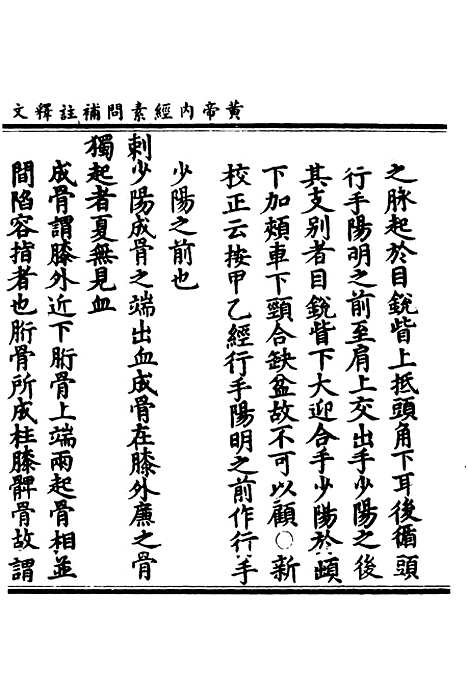 黄帝內經素問補註釋文
之脉起於目銳眥上抵頭角下耳後循頭
行手陽明之前至肩上交出手少陽之後
其支别者目銳眥下大迎合手少陽於䪼
下加頰車下頸合缺盆故不可以顧○新
校正云按甲乙經行手陽明之前作行手
少陽之前也
刺少陽成骨之端出血成骨在膝外廉之骨
獨起者夏無見血
成骨謂膝外近下胻骨上端兩起骨相並
間陷容指者也胻骨所成柱膝髀骨故謂